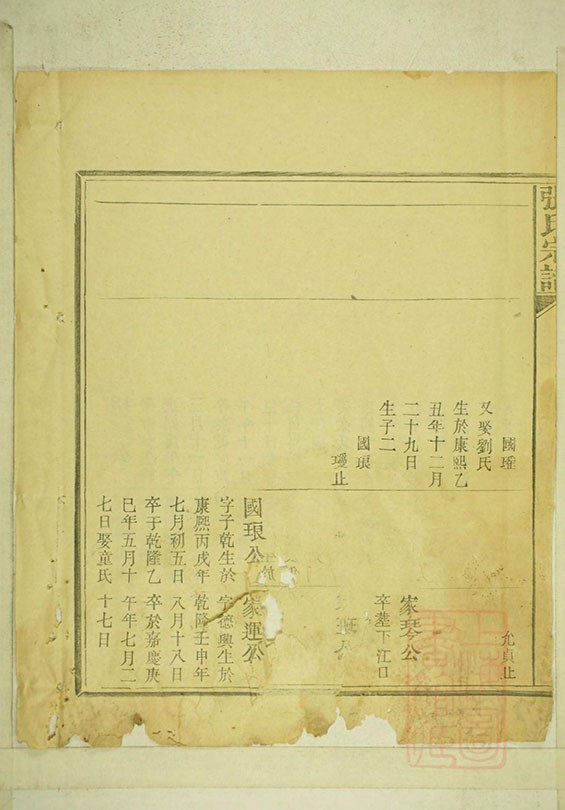 張氏宗譜
國璀
又娶劉氏
生於康熙乙
丑年十二月
二十九日
生子二
國琅
瑷止
允貞止
家琴公
卒塟下江口
國琅公
字子乾生於
康熙丙戌年
七月初五日
卒于乾隆乙
巳年五月十
七日娶童氏
家運公
字德興生於
乾隆壬申年
八月十八日
卒於嘉慶庚
午年七月二
十七日